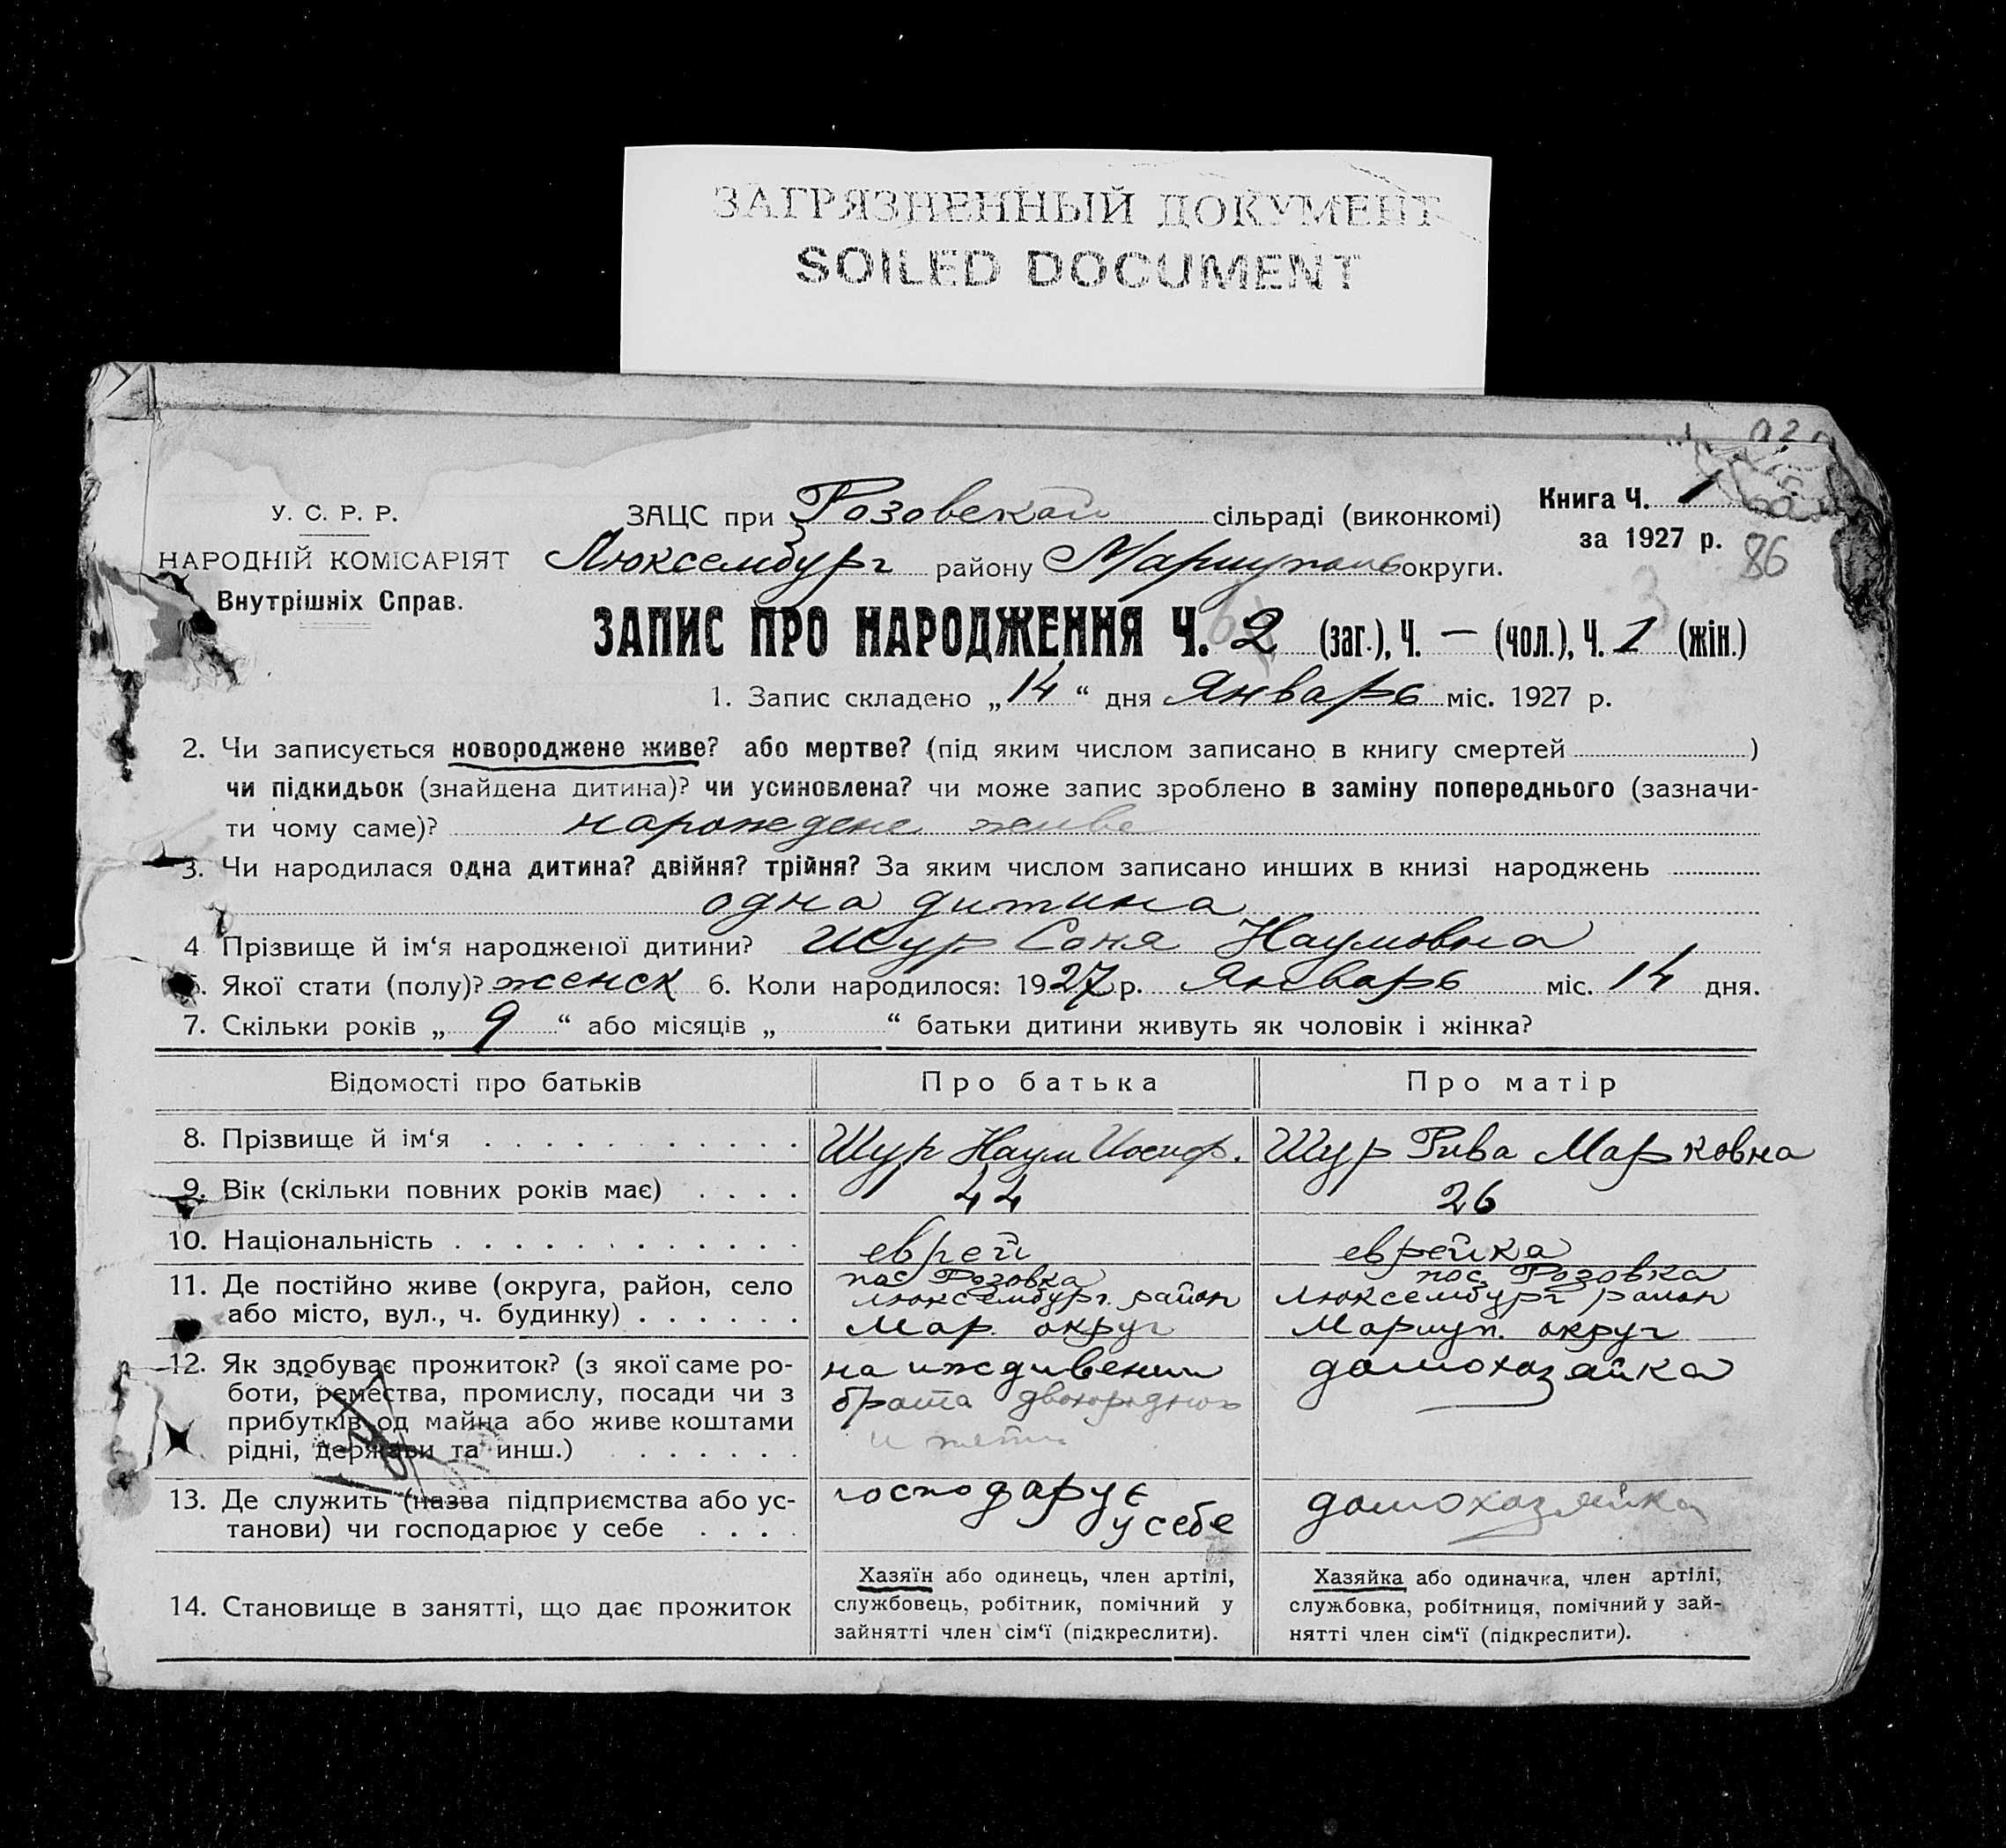 ЗАГРЯЗНЕННЫЙ ДОКУМЕНТ
SOILED DOCUMENT
У. С. Р. Р.
НАРОДНІЙ КОМІСАРІЯТ
Внутрішніх Справ.
ЗАЦС при Розовской сільраді (виконкомі)
Люксембург району Мариуполь округи.
Книга Ч. 1
за 1927 р.
86
ЗАПИС ПРО НАРОДЖЕННЯ Ч. 2 (заг.), Ч. — (чол.), Ч. 1 (жін.)
1. Запис складено „14“ дня Январь міс. 1927 р.
2. Чи записується новороджене живе? або мертве? (під яким числом записано в книгу смертей )
чи підкидьок (знайдена дитина)? чи усиновлена? чи може запис зроблено в заміну попереднього (зазначи-
ти чому саме)? нарождене живе
3. Чи народилася одна дитина? двійня? трійня? За яким числом записано инших в книзі народжень
одна дитина
4 Прізвище й ім‘я народженої дитини? Шур Соня Наумовна
5. Якої стати (полу)? женск 6. Коли народилося: 1927 р. Январь міс. 14 дня.
7. Скільки років „ 9 “ або місяців „ “ батьки дитини живуть як чоловік і жінка?
Відомості про батьків
Про батька
Про матір
8. Прізвище й ім‘я
Шур Наум Иосиф.
Шур Рива Марковна
9. Вік (скільки повних років має)
44
26
10. Національність
еврей
еврейка
11. Де постійно живе (округа, район, село
або місто, вул., ч. будинку)
пос. Розовка
люксембург. район
Мар. округ
пос. Розовка
люксембург район
Мариуп. округ
12. Як здобуває прожиток? (з якої саме ро-
боти, ремества, промислу, посади чи з
прибутків од майна або живе коштами
рідні, держави та инш.)
на иждивении
брата двоюродного
и
домохозяйка
13. Де служить (назва підприємства або ус-
танови) чи господарює у себе
господарує
у себе
домохозяйка
14. Становище в занятті, що дає прожиток
Хазяїн або одинець, член артілі,
службовець, робітник, помічний у
зайнятті член сім‘ї (підкреслити).
Хазяйка або одиначка, член артілі,
службовка, робітниця, помічний у зай-
нятті член сім‘ї (підкреслити).